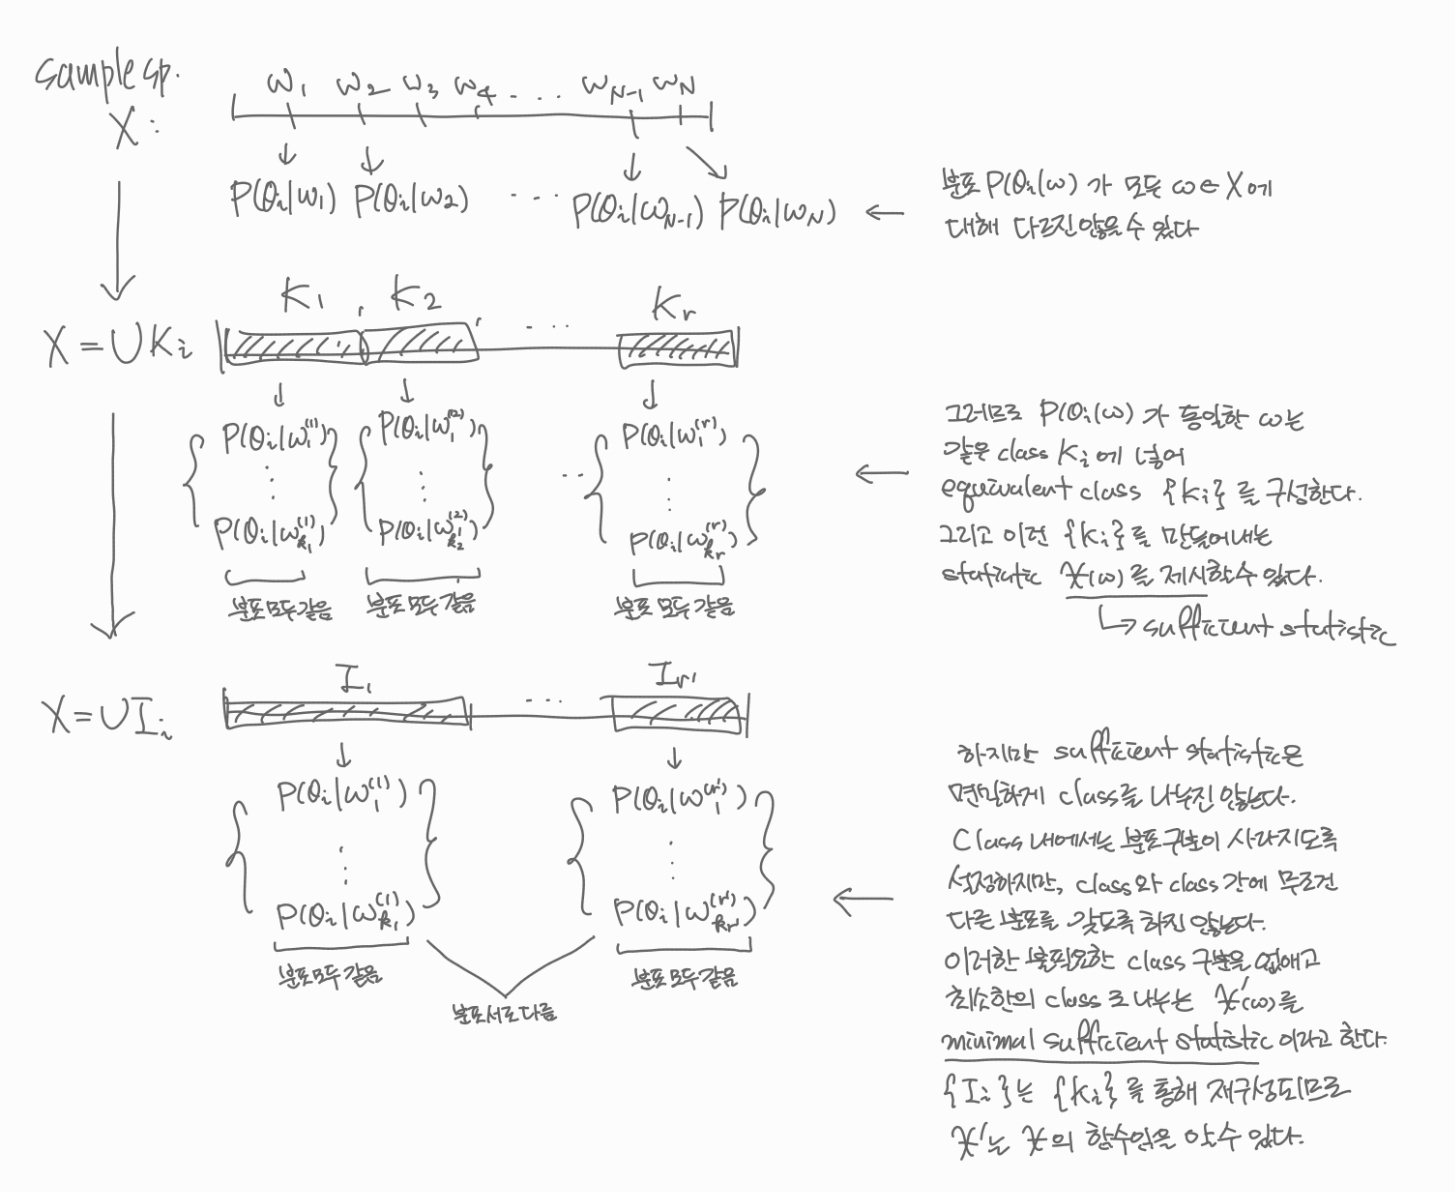 Sample sp.
X :
ω1 ω2 ω3 ω4 . . . . ωN-1 ωN
P(θi|ω1) P(θi|ω2) . . . . P(θi|ωN-1) P(θi|ωN)
분포 P(θi|ω) 가 모든 ω∈X에
대해 다르진 않을 수 있다
X = ∪Ki
K1 , K2 , . . . . Kr
P(θi|ω1^(1)) P(θi|ω1^(2)) . . . P(θi|ω1^(r))
P(θi|ωk1^(1)) P(θi|ωk2^(2)) P(θi|ωkr^(r))
분포 모두 같음 분포 모두 같음 분포 모두 같음
그러므로 P(θi|ω) 가 동일한 ω는
같은 class Ki에 넣어
equivalent class {Ki} 를 구성한다.
그리고 이런 {Ki}를 만들어내는
statistic X(ω)를 제시할 수 있다.
↳ sufficient statistic
X = ∪Ii
I1 . . . . Ir'
P(θi|ω1^(1)) P(θi|ω1^(r'))
P(θi|ωk1^(1)) P(θi|ωkr'^(r'))
분포 모두 같음 분포 모두 같음
분포 서로 다름
하지만 sufficient statistic은
면밀하게 class를 나누진 않는다.
Class 내에서는 분포 구분이 사라지도록
설정하지만, class와 class 간에 무조건
다른 분포를 갖도록 하진 않는다.
이러한 불필요한 class 구분을 없애고
최소한의 class로 나누는 X'(ω)를
minimal sufficient statistic 이라고 한다.
{Ii}는 {Ki}를 통해 재구성되므로
X'는 X의 함수임을 알 수 있다.